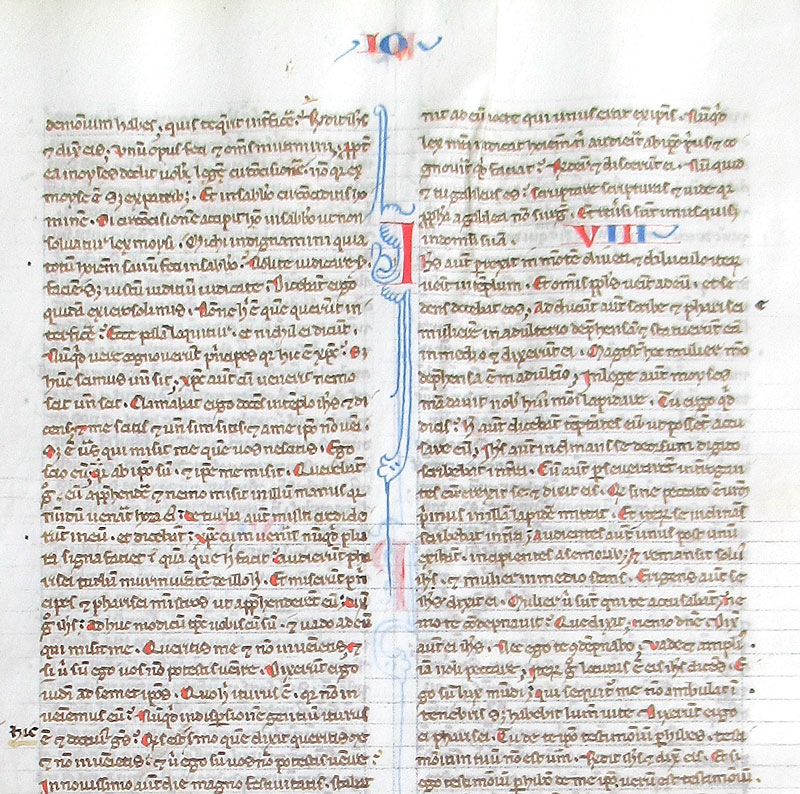 IOh
demonium habes, quis te querit interficere? Respondit ihs
et dixit eis. Vnum opus feci et omnes miramini. propterea
moyses dedit uobis
moyse est
mine. Si circumcisionem accipit homo in sabbato ut non
soluatur lex moysi. Michi indignamini quia
totum hominem sanum feci in sabbato. Nolite iudicare
faciem; iustum iudicium iudicate. Dicebant ergo
quidam ex ierosolimis. Nonne hic est quem querunt in
terficere? Ecce palam loquitur. et nichil ei dicunt.
Nunquid uere cognouerunt principes quia hic est xpc? Si
hunc scimus unde sit, xpc autem cum uenerit nemo
scit unde sit. Clamabat ergo docens in templo ihs et di
cens; et me scitis et unde sim scitis et a me ipso non ueni.
Sed est uerus qui misit me quem uos nescitis. Ego
scio eum, quia ab ipso sum. et ipse me misit. Querebant
ergo eum apprehendere et nemo misit in illum manus quia
nundum uenerat hora eius; De turba autem multi credide
runt in eum. et dicebant; xpc cum uenerit nunquid plu
ra signa faciet quam que hic facit? Audierunt pha
risei turbam murmurantem de illo hec. Et miserunt prin
cipes et pharisei ministros ut apprehenderent eum; Dixit
ergo ihs; Adhuc modicum tempus uobiscum sum. et uado ad eum
qui misit me. Queritis me et non inuenietis et
ubi sum ego uos non potestis uenire. Dixerunt ergo
iudei ad semet ipsos. Quo hic iturus est. quia non in
ueniemus eum? Nunquid in dispersionem gentium iturus
est et docturus gentes? Quis est sermo quem dixit queretis me
et non inuenietis. et ubi ego sum uos non potestis uenire?
In nouissimo autem die magno festiuitatis. stabat
hic
nit ad eum nocte qui unus erat ex ipsis. Nunquid
lex nostra iudicat hominem nisi audierit ab ipso prius et co
gnouerit quid faciat? Responderunt et dixerunt ei. Nunquid
et tu galileus es? scrutare scripturas et uide quia
propheta a galilea non surgit. Et reuersi sunt unusquisque
in domum suam.
VIII
Ihs autem perrexit in montem oliueti et diluculo iterum
uenit in templum. Et omnis populus uenit ad eum. et se
dens docebat eos, Adducunt autem scribe et pharisei
mulierem in adulterio deprehensam et statuerunt eam
in medio et dixerunt ei. Magister hec mulier modo
deprehensa est in adulterio, In lege autem moyses
mandauit nobis huiusmodi lapidare. Tu ergo quid
dicis? Hec autem dicebant temptantes eum ut possent accu
sare eum; Ihs autem inclinans se deorsum digito
scribebat in terra. Cum autem perseuerarent interrogan
tes eum erexit se. et dixit eis. Qui sine peccato est uestrum
primus in illam lapidem mittat. Et iterum se inclinans
scribebat in terra; audientes autem unus post unum
exibant. incipientes a senioribus; et remansit solus
ihs. et mulier in medio stans. Erigens autem se
ihs dixit ei. Mulier ubi sunt qui te accusabant; ne
mo te condempnauit? Que dixit; nemo domine. Dixit
autem ei ihs. Nec ego te condempnabo, uade et amplius
iam noli peccare, Iterum ergo locutus est eis ihs dicens. E
go sum lux mundi; qui sequitur me non ambulat in
tenebris; sed habebit lumen uite. Dixerunt ergo
ei pharisei. Tu de te ipso testimonium perhibes. testi
monium tuum non est uerum. Respondit ihs et dixit eis. Et si
ego testimonium perhibeo de me ipso uerum est testimonium